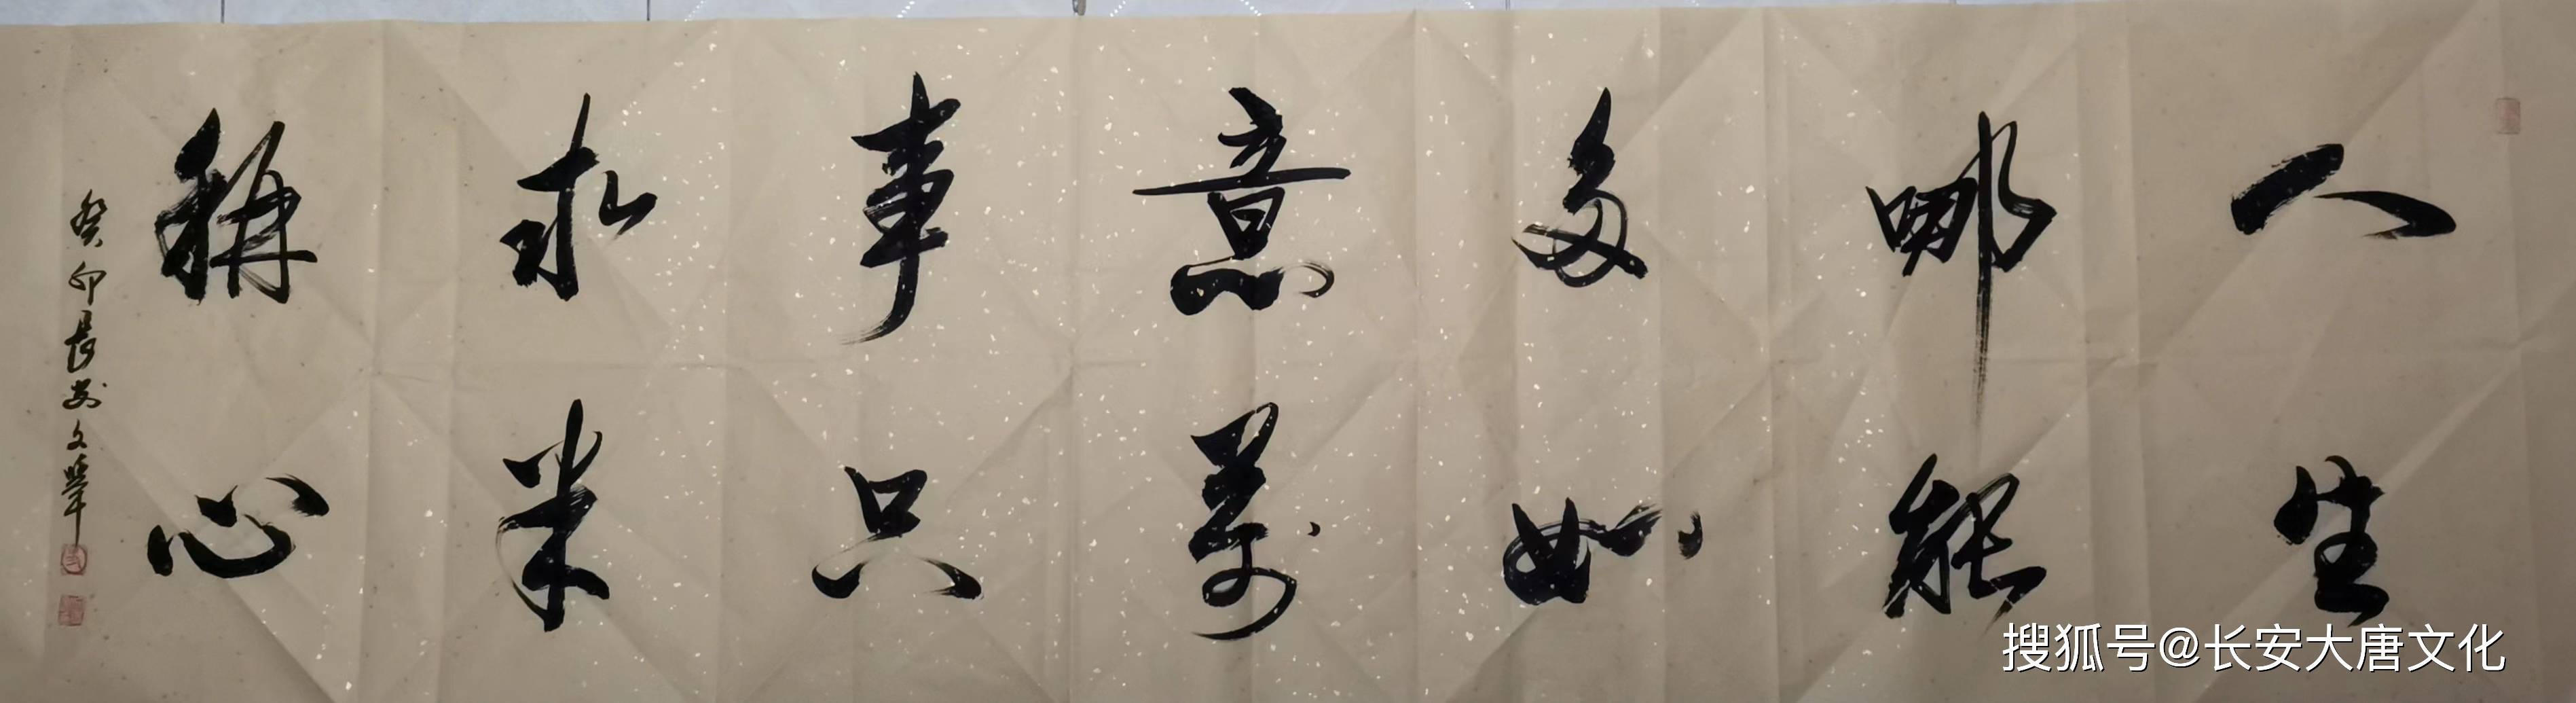 人生
哪能
多如
意萬
事只
求半
稱心
癸卯長安文
搜狐号@长安大唐文化